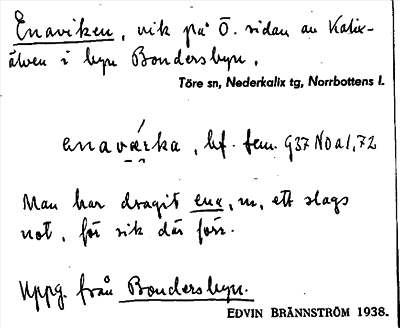 Enaviken, vik på Ö. sidan av Kalix-
älven i byn Bondersbyn.
Töre sn, Nederkalix tg, Norrbottens l.
enavı̨ka, bf. fem. G37 N0a1,72
Man har dragit ena, m, ett slags
not, för sik där förr.
Uppg. från Bondersbyn.
EDVIN BRÄNNSTRÖM 1938.